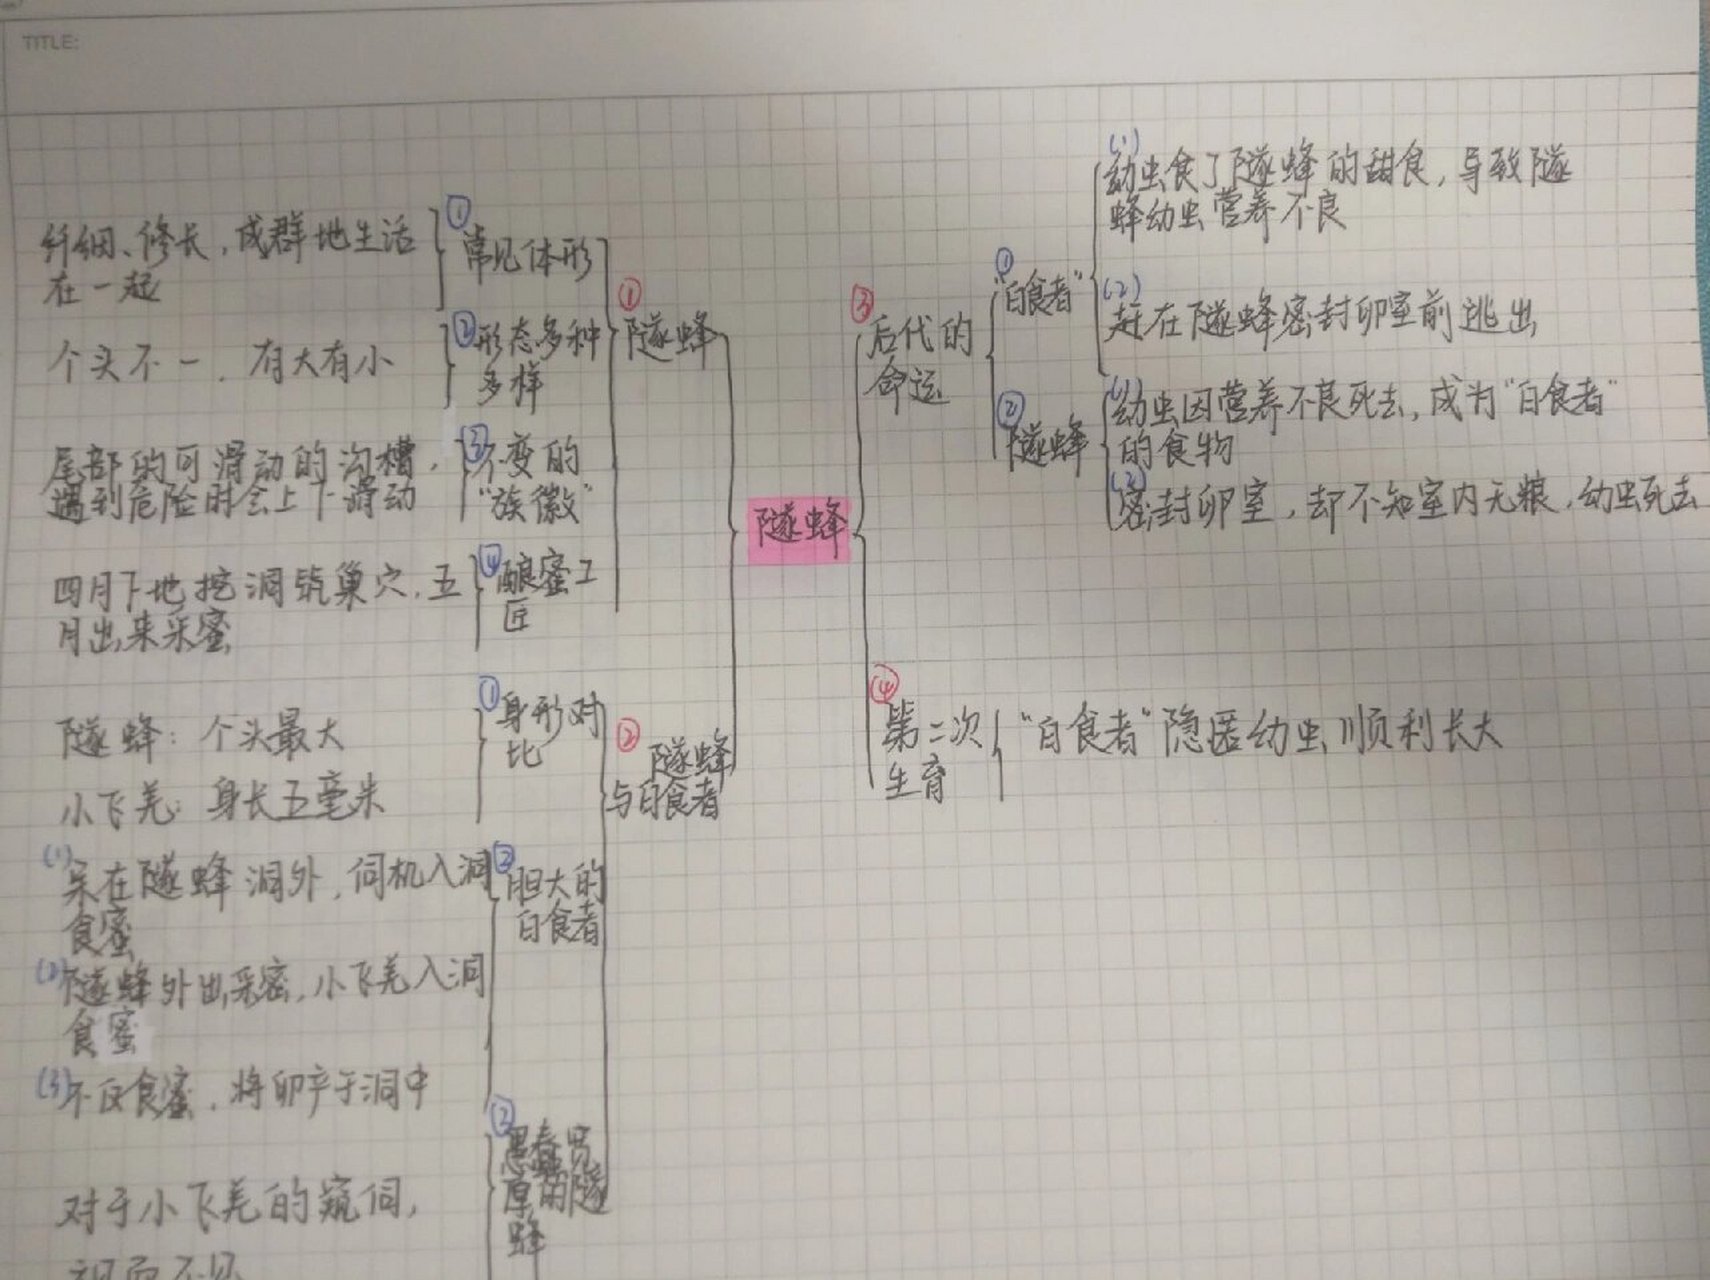 TITLE:
隧蜂
①
隧蜂
①
常见体形
纤细、修长，成群地生活
在一起
②
形态多种
多样
个头不一．有大有小
③
不变的
“族徽”
尾部的可滑动的沟槽，
遇到危险时会上下滑动
④
酿蜜工
匠
四月下地挖洞筑巢穴，五
月出来采蜜
②
隧蜂
与白食者
①
身形对
比
隧蜂：个头最大
小飞羌：身长五毫米
②
胆大的
白食者
(1)
呆在隧蜂洞外，伺机入洞
食蜜
(2)
隧蜂外出采密，小飞羌入洞
食蜜
(3)
不仅食蜜，将卵产于洞中
③
愚蠢宽
厚的隧
蜂
对于小飞羌的窥伺，
视而不见
③
后代的
命运
①
“白食者”
(1)
幼虫食了隧蜂的甜食，导致隧
蜂幼虫营养不良
(2)
赶在隧蜂密封卵室前逃出
②
隧蜂
(1)
幼虫因营养不良死去，成为“白食者”
的食物
(2)
密封卵室，却不知室内无粮，幼虫死去
④
第二次
生育
“白食者”隐匿幼虫顺利长大